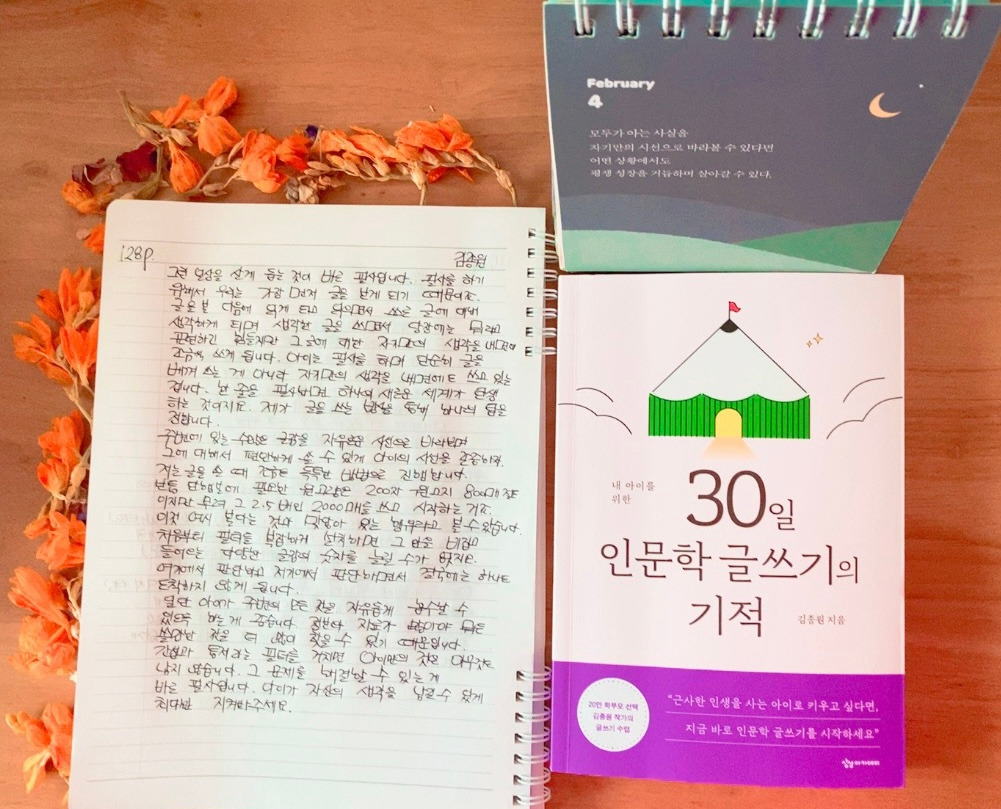 February
4
모두가 아는 사실을
자기만의 시선으로 바라볼 수 있다면
어떤 상황에서도
평생 성장을 거듭하며 살아갈 수 있다.
128p. 김종원
그런 일상을 살게 돕는 것이 바로 필사입니다. 필사를 하기
위해서 우리는 가장 먼저 글을 받게 되기 때문이죠.
글을 본 다음에 읽게 되고 읽으면서 쓰는 글에 대해
생각하게 되며 생각한 글을 쓰면서 당장에는 뭐라고
표현하긴 힘들지만 그것에 대한 자기만의 생각을 내면에
조금씩 쓰게 됩니다. 아이는 필사를 하며 단순히 글을
베껴 쓰는 게 아니라 자기만의 생각을 내면에도 쓰고 있는
겁니다. 한 줄을 필사하면 하나의 새로운 세계가 탄생
하는 것이지요. 제가 글을 쓰는 방법을 통해 남다른 팁을
전합니다.
주변에 있는 수많은 글감을 자유로운 시선으로 바라보며
그에 대해서 편안하게 쓸 수 있게 아이의 시선을 존중하자.
저는 글을 쓸 때 조금은 독특한 방법으로 진행합니다.
보통 단행본에 필요한 원고량은 200자 원고지 800매 정도
이지만 무려 그 2.5배인 2000매를 쓰고 시작하는 거죠.
이것 역시 본다는 것과 맞닿아 있는 부분이라고 볼 수 있습니다.
처음부터 필터를 촘촘하게 설치하면 그 만을 비집고
들어오는 다양한 글감의 숫자를 늘릴 수가 없지요.
여기에서 판단하고 저기에서 판단하면서 결국에는 하나도
도착하지 않게 됩니다.
일단 아이가 주변의 모든 것을 자유롭게 흡수할 수
있도록 하는 게 좋습니다. 결론과 지도가 많아야 뭐든
쓸만한 것을 더 많이 찾을 수 있기 때문입니다.
간섭과 통제라는 필터를 거치면 아이만의 것은 아무것도
남지 않습니다. 그 문제를 해결할 수 있는 게
바로 필사입니다. 아이가 자신의 생각을 남길 수 있게
최대한 지켜봐주세요.
내 아이를
위한
30일
인문학 글쓰기의
기적
김종원 지음
20만 학부모 선택
김종원 작가의
글쓰기 수업
“근사한 인생을 사는 아이로 키우고 싶다면,
지금 바로 인문학 글쓰기를 시작하세요”
상상아카데미